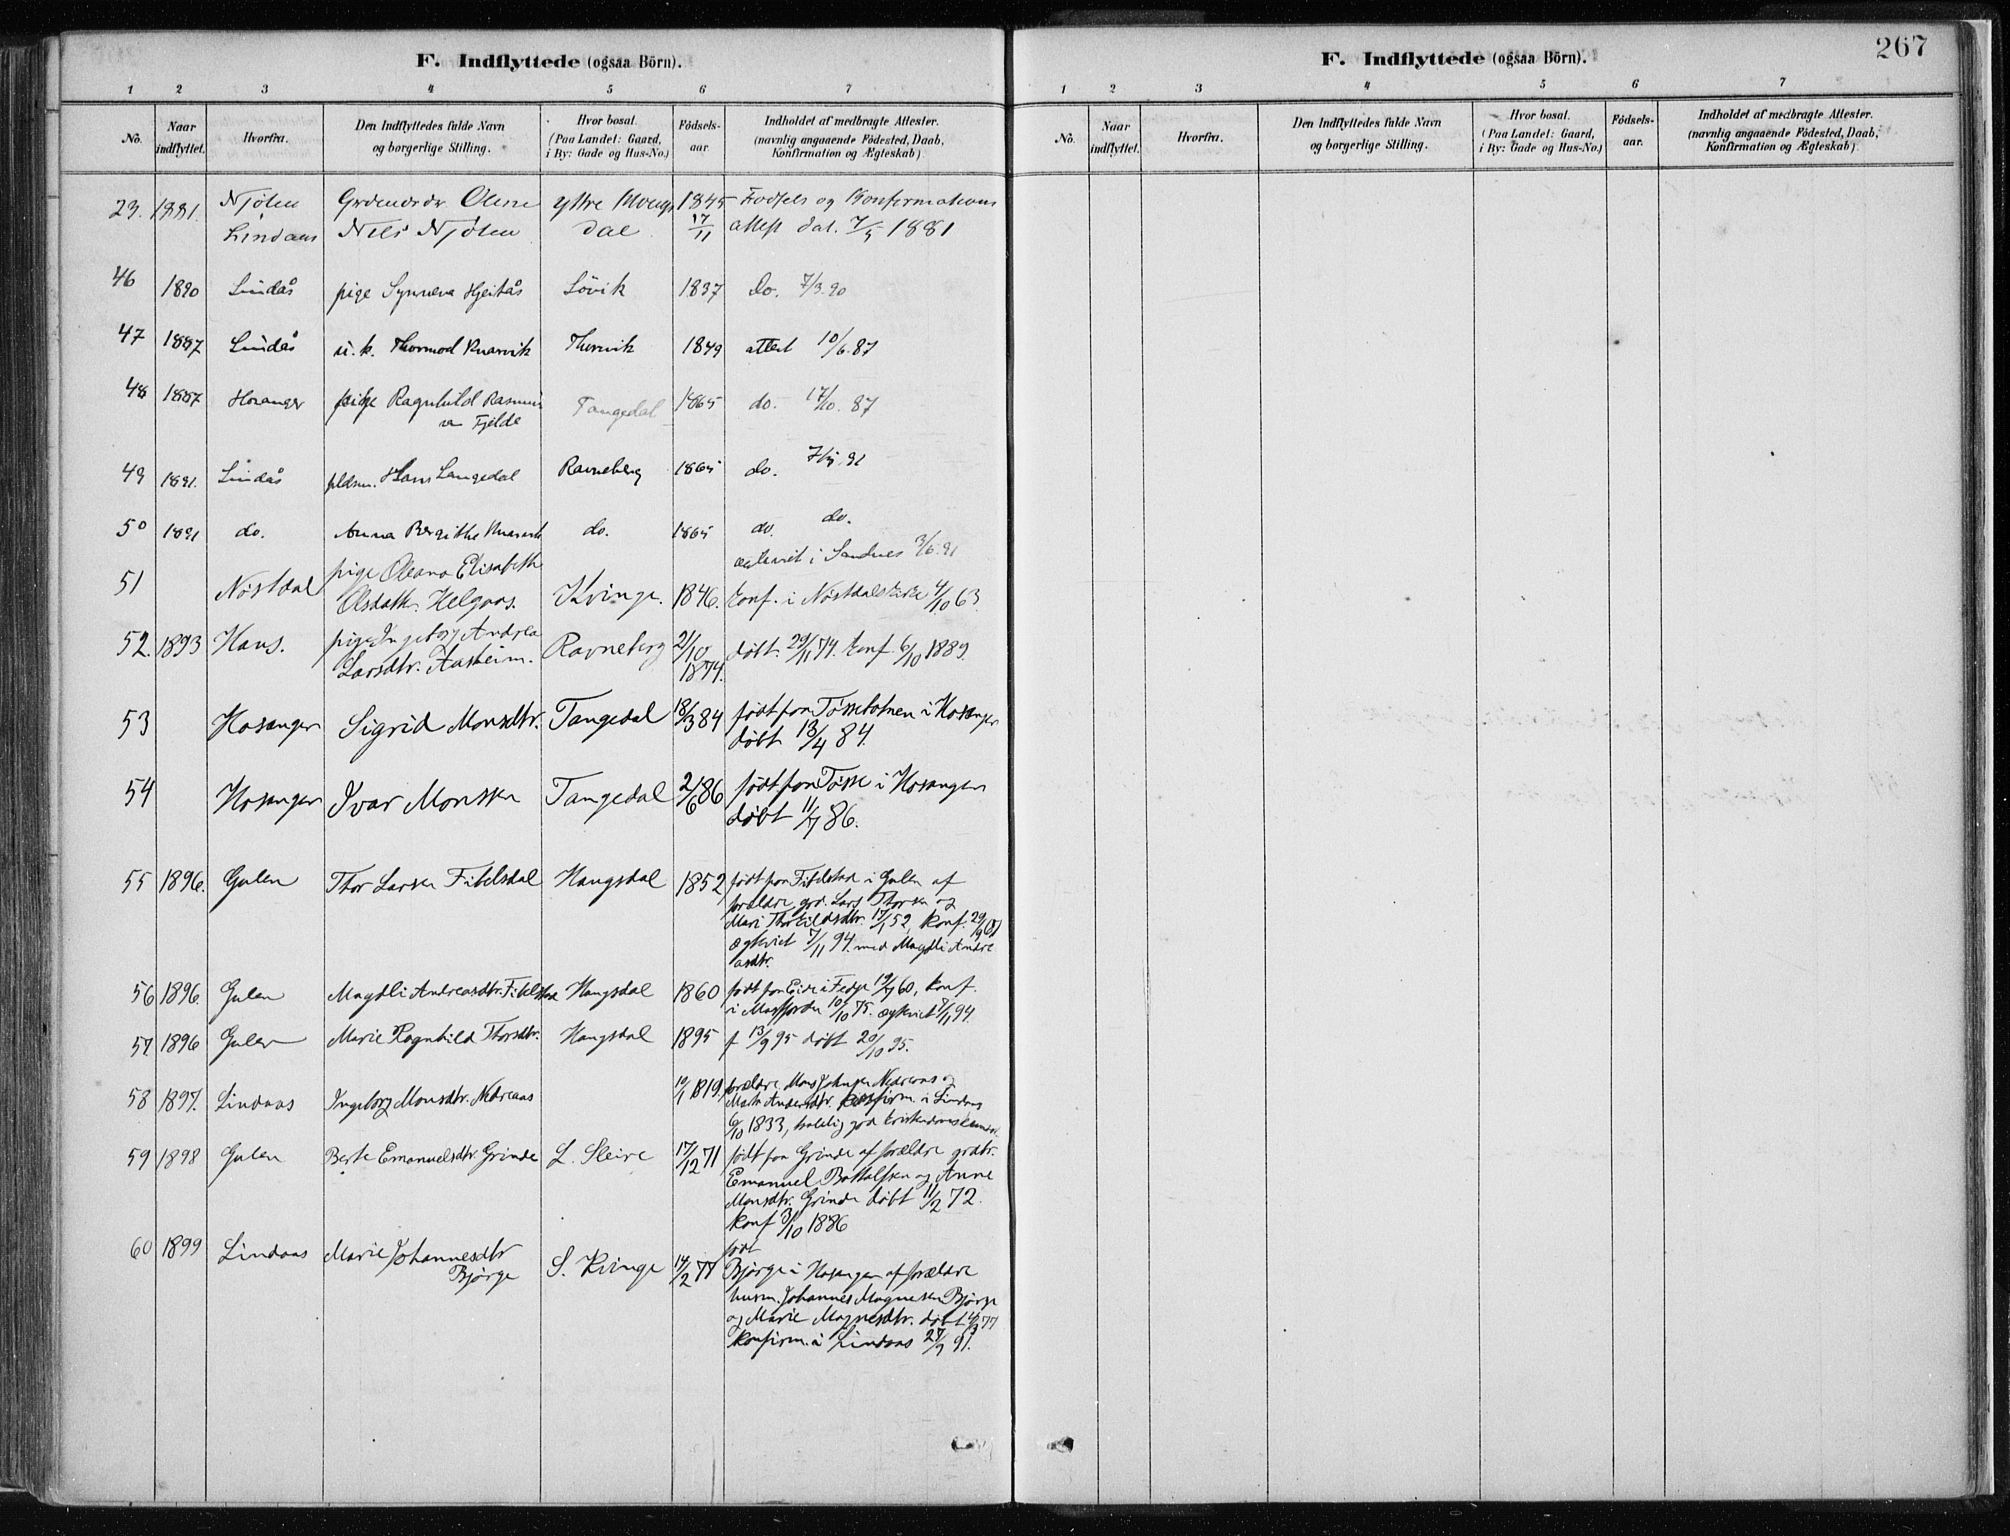 F. Indflyttede (ogsaa Börn).
1 2 3 4 5 6 7
No. Naar indflyttet. Hvorfra. Den Indflyttedes fulde Navn og borgerlige Stilling. Hvor bosat. (Paa Landet: Gaard, i By: Gade og Hus-No.) Födsels-aar. Indholdet af medbragte Attester. (navnlig angaaende Födested, Daab, Konfirmation og Ægteskab).
23. 1881. Njöten 1845 Fødsels og Konfirmations
Lindaas Nils Njöten dal 17/11 attest dat. 7/5 1881
46 1890 Lindås pige Synneva Hjeitås Lövik 1837 do. 7/3.90
47 1887 Lindås u.k. Thormod Knarvik 1849 attest 10/6.87
48 1887 Hosanger pige Ragnhild Tangedal 1865 do. 17/10. 87
Fjelde
49 1891. Lindås Hans Langedal Ravneberg 1865 do. 7/5.91
50 1891 do. Anna Bergithe do. 1865 do. do.
ægteviet i Sandnes 3/6.91
51 Nöstdal pige Oleana Elisabeth
Olsdatt. Helgaas. Kvinge. 1846. konf. i Nöstdalskirke 4/10 63
52. 1893 Haus. pige Ingeborg Andrea Ravneberg 21/10 døbt 29/11 74. konf 6/10 1889.
Larsdtr. Aasheim. 1874.
53 Hosanger Sigrid Monsdtr. Tangedal 18/3 84 født paa Tössebotnen i Hosanger
döbt 13/4 84.
54 Hosanger Ivar Monssen Tangedal 2/6 86 født paa Tösse i Hosanger
döbt 11/7 86.
55 1896. Gulen Thor Larsen Haugsdal 1852 født paa i Gulen af
forældre grd. Lars Thorsen og
Mari 17/1 52, konf. 29/9
ægteviet 7/11 94 med Magdli Andre
asdtr.
56 1896. Gulen Magdli Andreasdtr. Haugsdal 1860 født paa Eide i Fedje 19/7 60, konf.
i Masfjorden 10/10 75. ægteviet 7/11 94.
57 1896 Gulen Marie Ragnhild Thorsdtr. Haugsdal 1895 f 13/9 95 döbt 20/10 95.
58 1897. Lindaas Ingeborg Monsdtr. Nedreaas 19/1 1819. forældre Mons Johnsen Nedreaas og
Andersdtr. konfirm. i Lindaas
6/10 1833, god
59 1898 Gulen Berte Emanuelsdtr Grinde L. Sleire 17/12 71 født paa Grinde af forældre grdbr.
Emanuel Bottolfsen og Anne
Monsdtr. Grinde döbt 11/2 72.
konf 3/10 1886
60 1899 Lindaas Marie Johannesdtr født
Bjørge S. Kvinge 14/2 77 Bjørge i Hosanger af forældre
husm. Johannes Magnesen Bjørge
og Marie Magnesdtr. döbt 4/3 77
konfirm. i Lindaas 27/9 91.
F. Indflyttede (ogsaa Börn).
267
1 2 3 4 5 6 7
No. Naar indflyttet. Hvorfra. Den Indflyttedes fulde Navn og borgerlige Stilling. Hvor bosat. (Paa Landet: Gaard, i By: Gade og Hus-No.) Födsels-aar. Indholdet af medbragte Attester. (navnlig angaaende Födested, Daab, Konfirmation og Ægteskab).